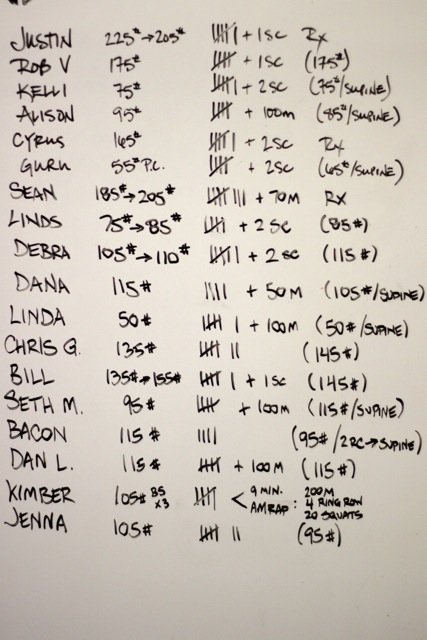 JUSTIN 225#→205# 卌 I + 1SC Rx
ROB V 175# 卌 + 1SC (175#)
KELLI 75# 卌 I + 2SC (75#/SUPINE)
ALISON 95# 卌 + 100M (85#/SUPINE)
CYRUS 165# 卌 I + 2SC Rx
GURU 55# P.C. 卌 + 2SC (65#/SUPINE)
SEAN 185#→205# 卌 III + 70M Rx
LINDS 75#→85# 卌 + 2SC (85#)
DEBRA 105#→110# 卌 I + 2SC (115#)
DANA 115# IIII + 50M (105#/SUPINE)
LINDA 50# 卌 I + 100M (50#/SUPINE)
CHRIS G. 135# 卌 II (145#)
BILL 135#→155# 卌 I + 1SC (145#)
SETH M. 95# 卌 + 100M (115#/SUPINE)
BACON 115# IIII (95#/2RC→SUPINE)
DAN L. 115# 卌 + 100M (115#)
KIMBER 105# 85 x3 卌 < 9 MIN. AMRAP: 200M
4 RING ROW
20 SQUATS
JENNA 105# 卌 II (95#)